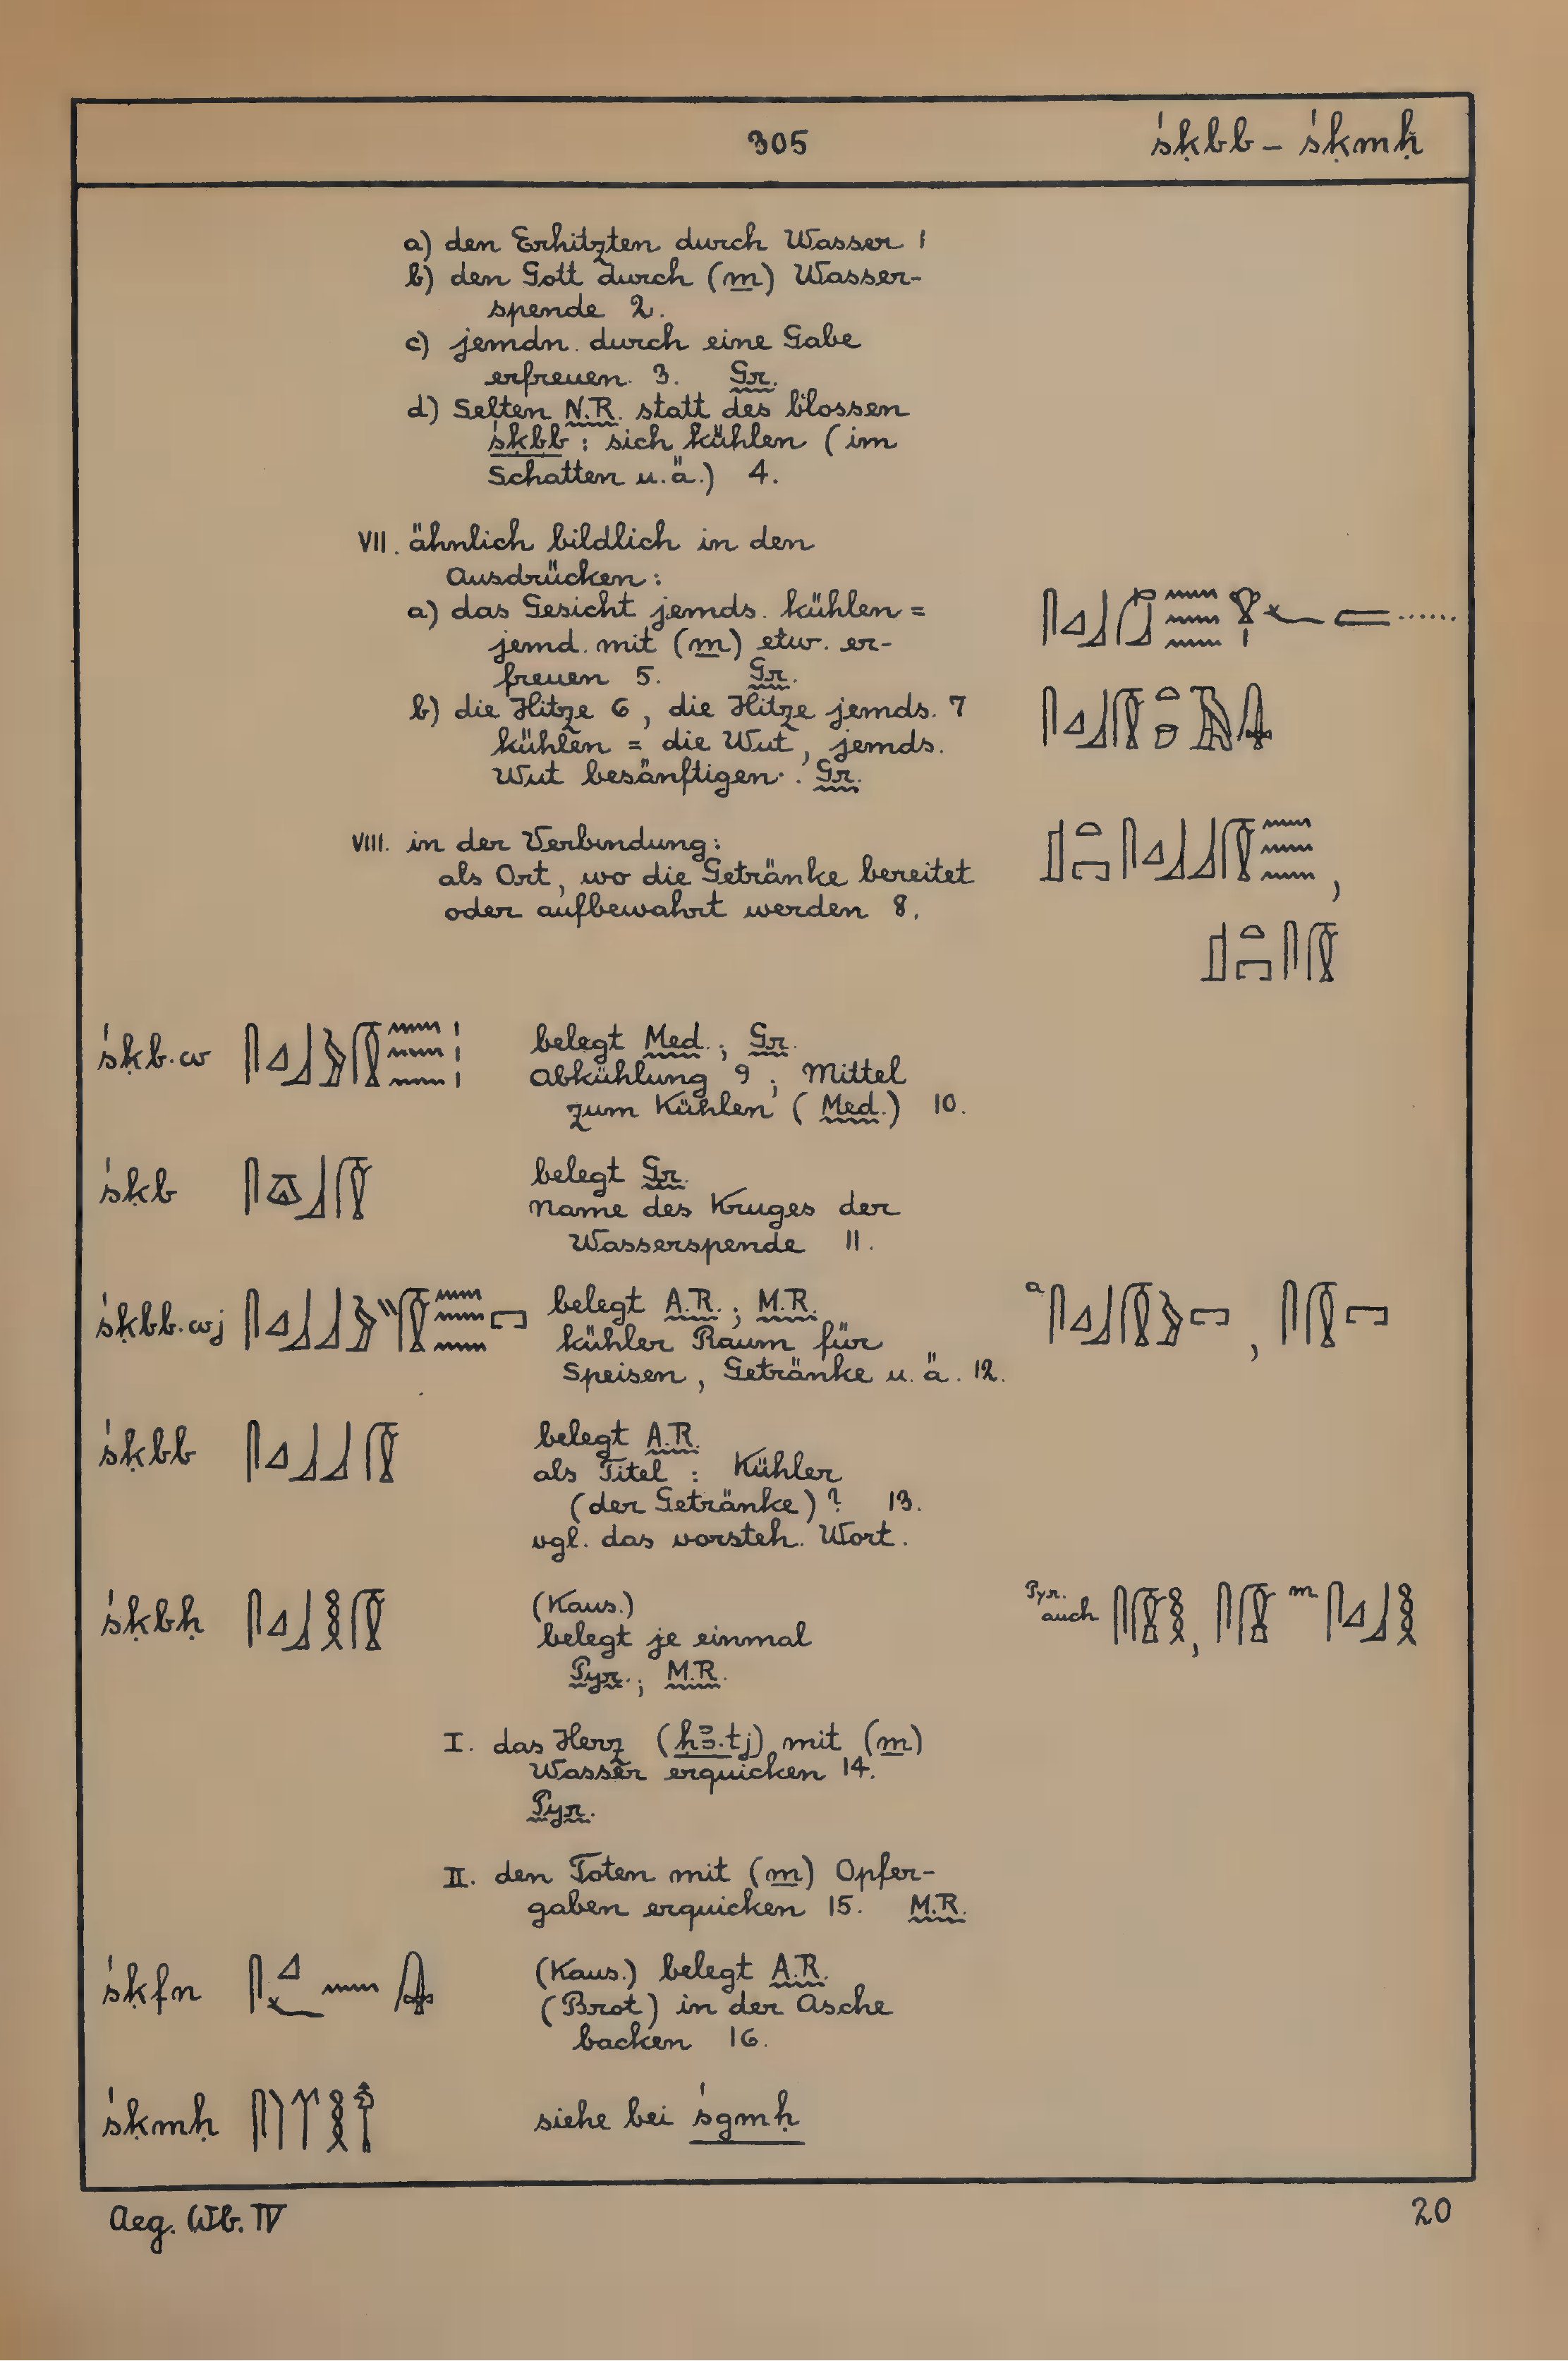 305 śḳbb – śḳmḥ
a) den Erhitzten durch Wasser 1
b) den Gott durch (m) Wasser-
spende 2.
c) jemdn. durch eine Gabe
erfreuen. 3. Gr.
d) Selten N.R. statt des blossen
śḳbb : sich kühlen (im
Schatten u.ä.) 4.
VII. ähnlich bildlich in den
Ausdrücken:
a) das Gesicht jemds. kühlen =
jemd. mit (m) etw. er-
freuen 5. Gr.
b) die Hitze 6, die Hitze jemds. 7
kühlen = die Wut, jemds.
Wut besänftigen. Gr.
VIII. in der Verbindung:
als Ort, wo die Getränke bereitet
oder aufbewahrt werden 8.
śḳb.w belegt Med.; Gr.
Abkühlung 9; Mittel
zum Kühlen (Med.) 10.
śḳb belegt Gr.
Name des Kruges der
Wasserspende 11.
śḳbb.wj belegt A.R.; M.R. a
kühler Raum für
Speisen, Getränke u.ä. 12.
śḳbb belegt A.R.
als Titel: Kühler
(der Getränke)? 13.
vgl. das vorsteh. Wort.
śḳbḥ (Kaus.) Pyr. auch m
belegt je einmal
Pyr.; M.R.
I. das Herz (ḥꜣ.tj) mit (m)
Wasser erquicken 14.
Pyr.
II. den Toten mit (m) Opfer-
gaben erquicken 15. M.R.
śḳfn (Kaus.) belegt A.R.
(Brot) in der Asche
backen 16.
śḳmḥ siehe bei śgmḥ
Aeg. Wb. IV 20